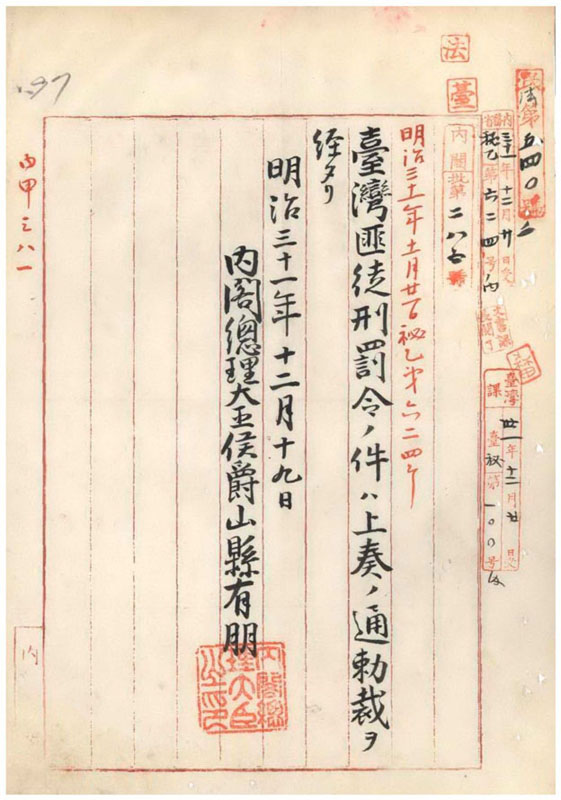 法
臺
内閣批第二八七号
明治三十一年十二月廿日秘乙第六二四号
臺灣匪徒刑罰令ノ件ハ上奏ノ通勅裁ヲ
経タリ
明治三十一年十二月十九日
内閣總理大臣侯爵山縣有朋
三十一年十二月廿日
秘乙第六二四号ノ内
臺灣課
卅一年十二月廿日
臺秘第一〇〇号
丙甲三八一
内